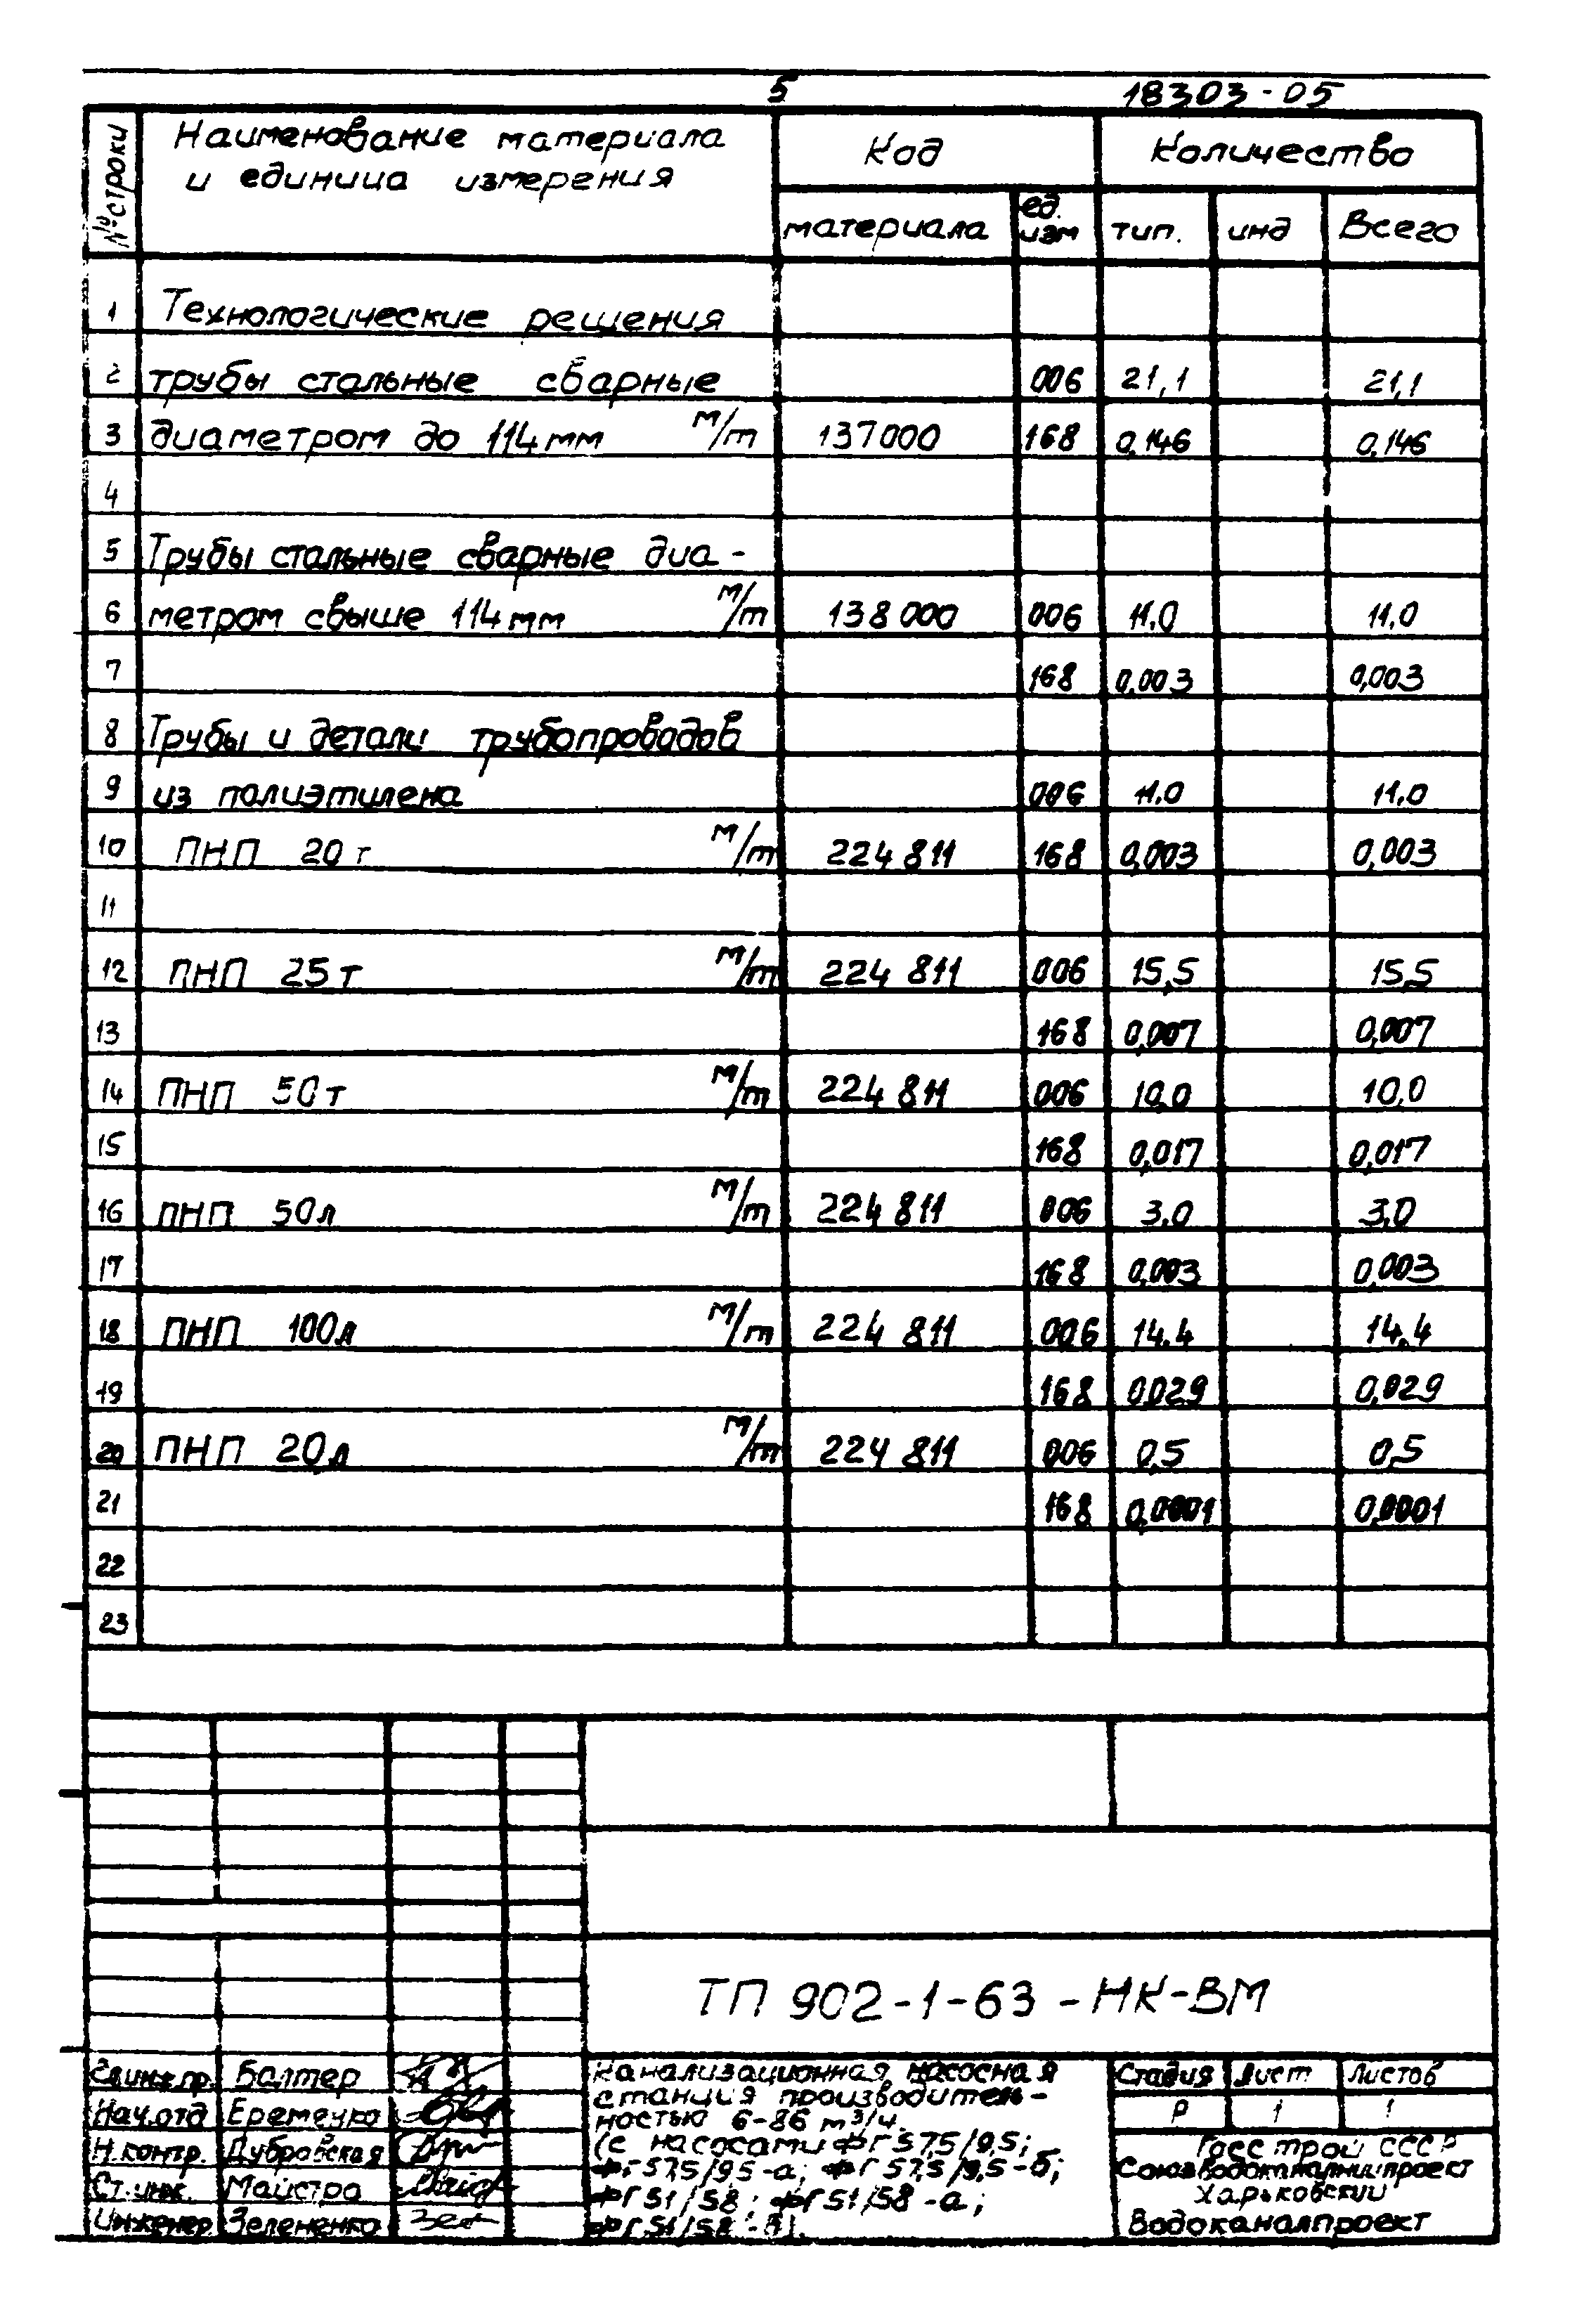 5
18303-05
№ строки
Наименование материала
и единица измерения
Код
Количество
материала
ед.
изм
тип.
инд
Всего
1 Технологические решения
2 трубы стальные сварные 006 21,1 21,1
3 диаметром до 114мм м/т 137000 168 0,146 0,146
4
5 Трубы стальные сварные диа-
6 метром свыше 114мм м/т 138000 006 11.0 11.0
7 168 0,003 0,003
8 Трубы и детали трубопроводов
9 из полиэтилена 006 11.0 11.0
10 ПНП 20т м/т 224811 168 0,003 0,003
11
12 ПНП 25т м/т 224811 006 15,5 15,5
13 168 0,007 0,007
14 ПНП 50т м/т 224811 006 10,0 10,0
15 168 0,017 0,017
16 ПНП 50л м/т 224811 006 3.0 3.0
17 168 0,003 0,003
18 ПНП 100л м/т 224811 006 14.4 14.4
19 168 0,029 0,029
20 ПНП 20л м/т 224811 006 0,5 0,5
21 168 0,0001 0,0001
22
23
ТП 902-1-63-НК-ВМ
Гл.инж.пр. Балтер
Нач.отд Еременко
Н.контр. Дубровская
Ст.инж. Майстро
Инженер Зелененко
Канализационная насосная
станция производитель-
ностью 6-86 м³/ч.
(с насосами ФГ57,5/9,5;
ФГ57,5/9,5-а; ФГ57,5/9,5-б;
ФГ51/58; ФГ51/58-а;
ФГ51/58-б).
Стадия Лист Листов
Р 1 1
Госстрой СССР
Союзводоканалниипроект
Харьковский
Водоканалпроект